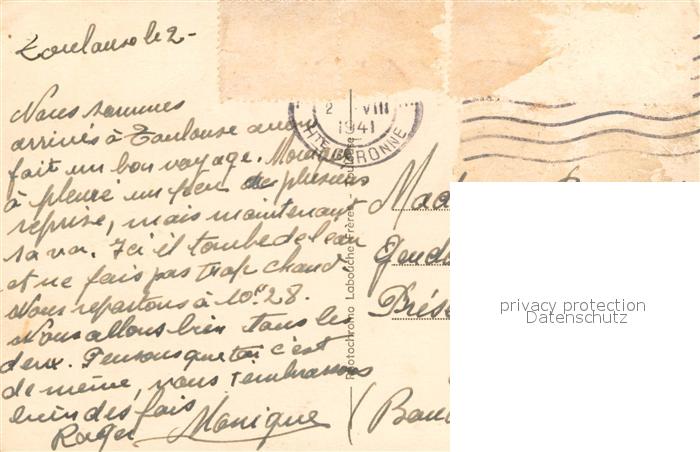 Toulouse le 2-
Nous sommes
arrivés à Toulouse avons
fait un bon voyage.
à pleuré un peu de plusieurs
reprise, mais maintenant
sa va. Ici il tombe de l'eau
et ne fais pas trop chaud
Nous repartons à 10h28.
Nous allons bien tous les
deux. Pensons que toi c'est
de même, nous t'embrassons
bien des fois
Roger Monique
2 VIII
1941
HTE GARONNE
Photochromo Labouche Frères - Toulouse
Mad
Gend
Prés
(Ban
privacy protection
Datenschutz